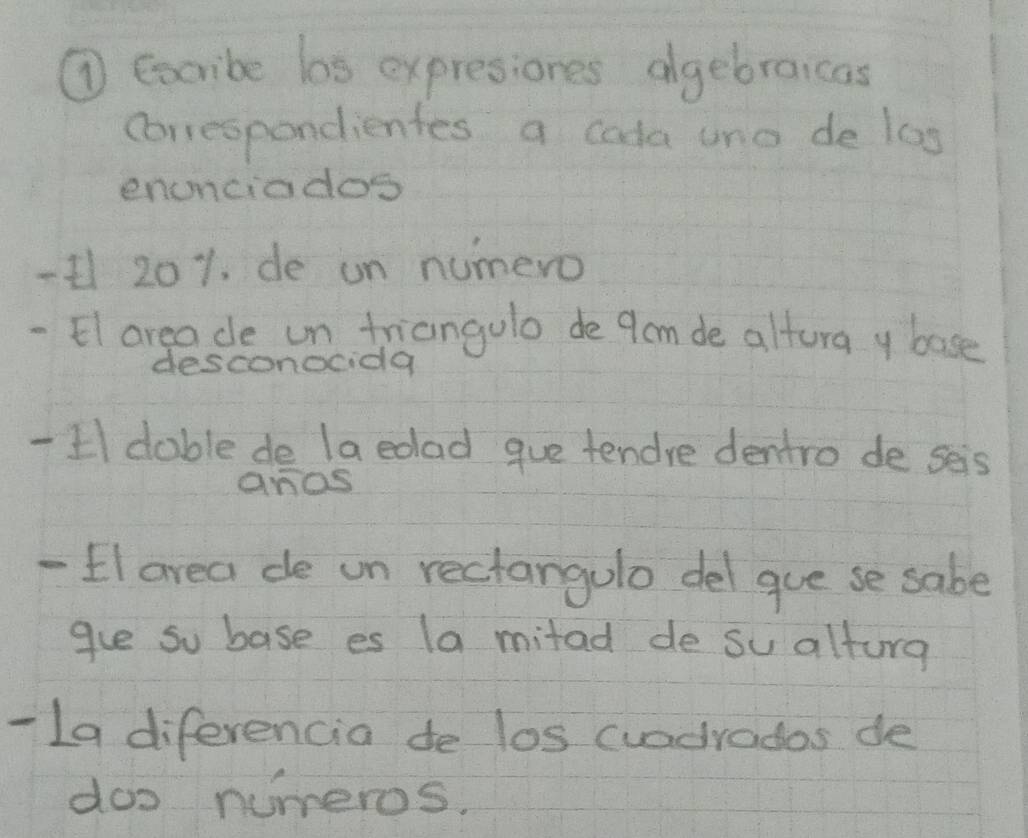 ① Escribe las expresiones algebraicas
correspondientes a cada uno de los
enunciados
- El 20%. de un número
- El area de un triangulo de 9cm de altura y base
desconocida
- El doble de la edad que tendre dentro de seis
años
- El area de un rectangulo del que se sabe
que su base es la mitad de su altura
- La diferencia de los cuadrados de
dos números.